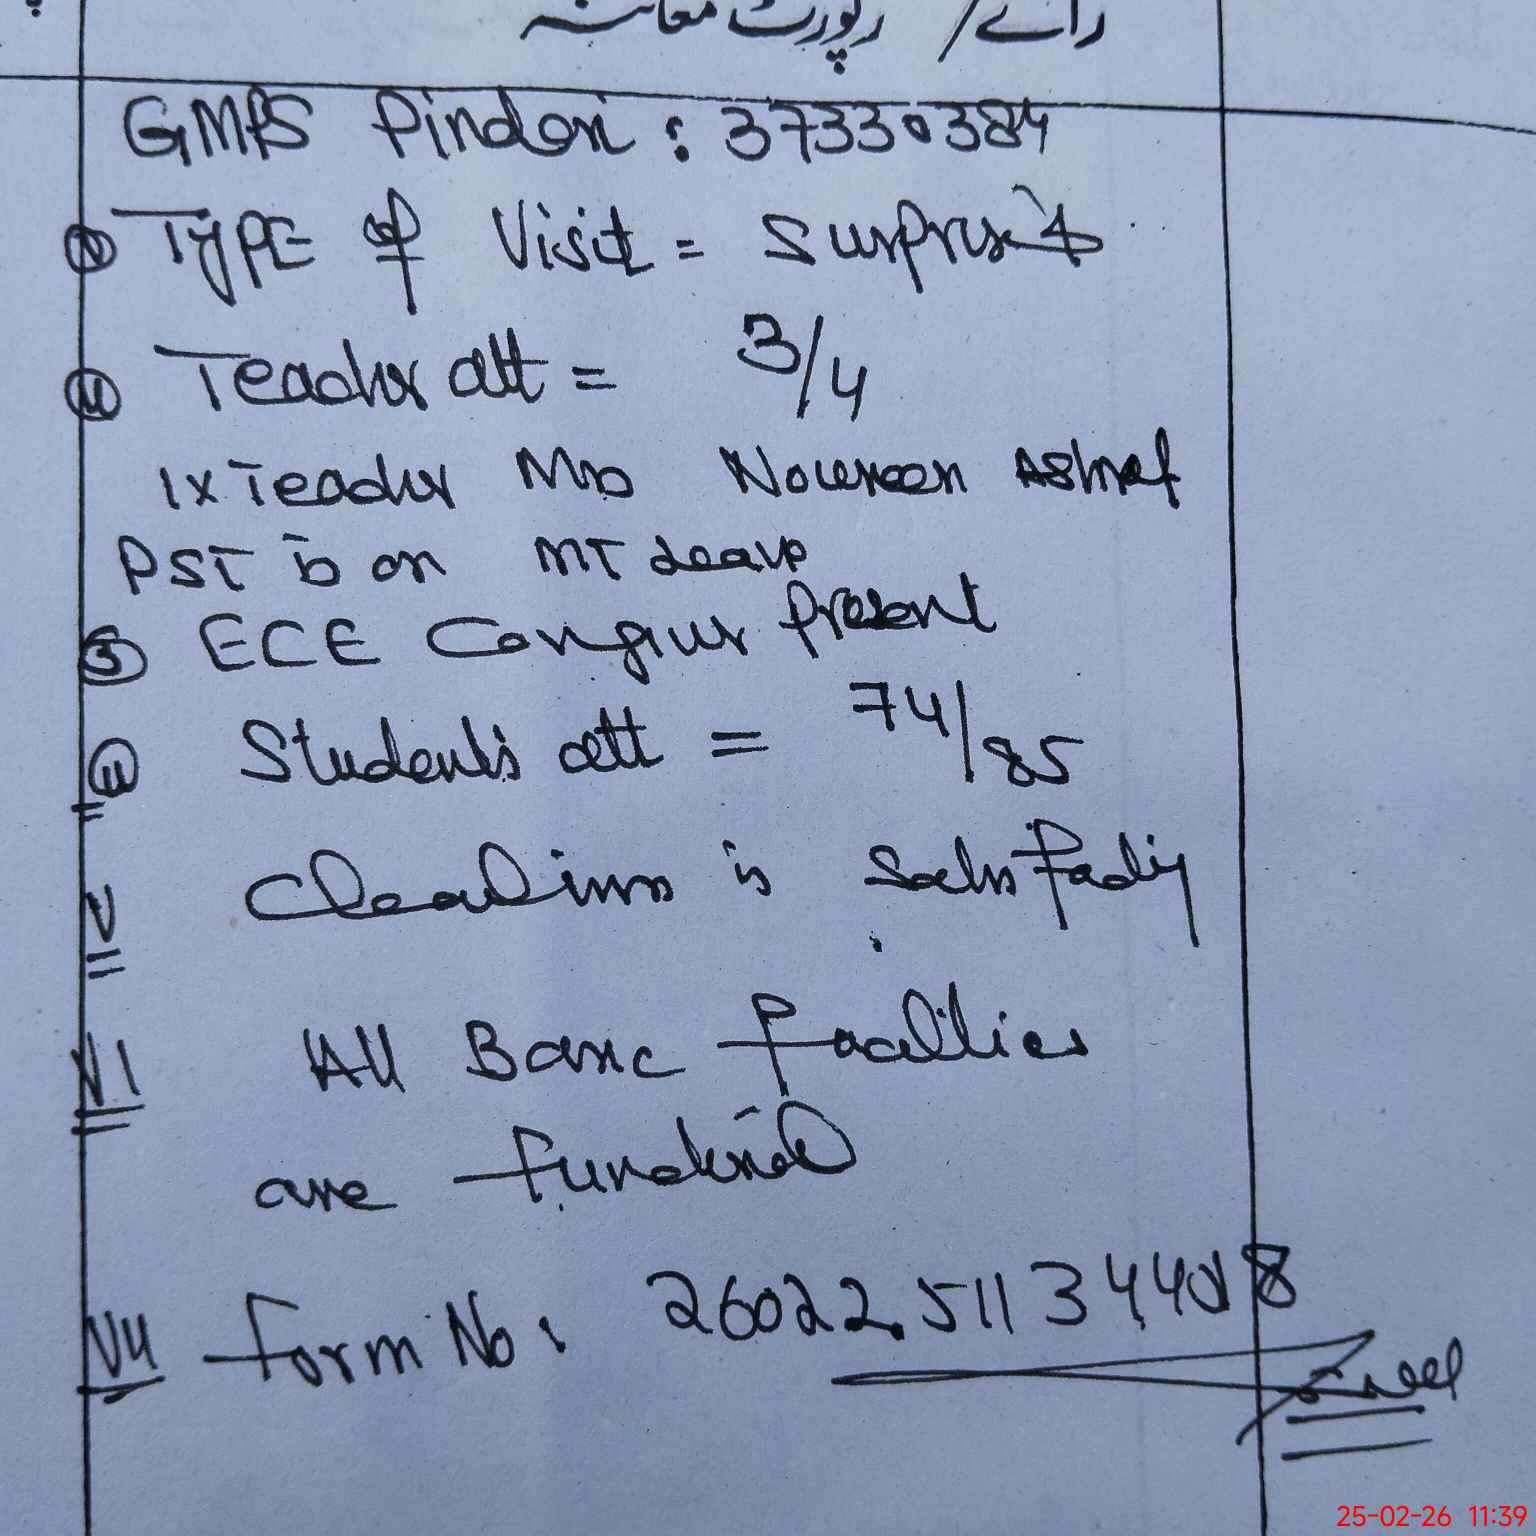 رائے / رپورٹ معائنہ
GMPS Pindori : 37330384
TYPE of Visit = Surprise
Teacher att = 3/4
1x Teacher Ms Noureen Ashraf
PST is on MT Leave
ECE Caregiver Present
Students att = 74/85
V Cleanliness is Satisfactory
VI All Basic facilities
are functional
VII Form No : 260225113440
25-02-26 11:39